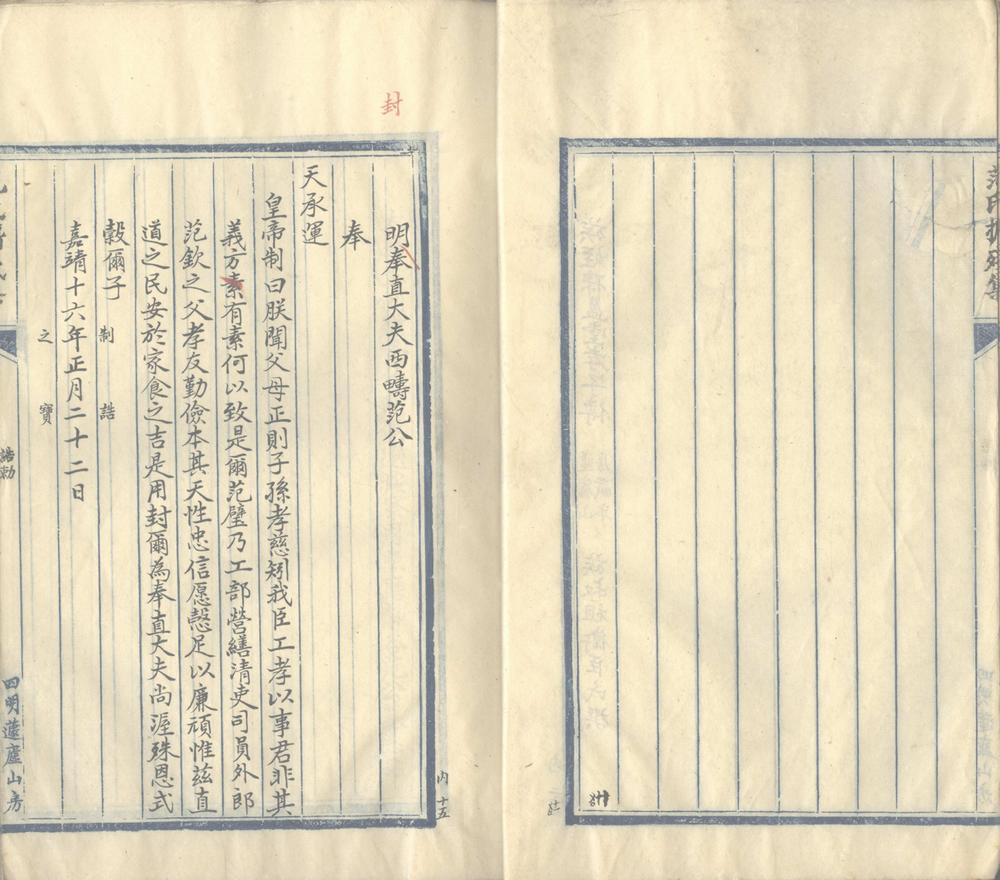 封
明奉直大夫西疇范公
奉
天承運
皇帝制曰朕聞父母正則子孫孝慈矧我臣工孝以事君非其
義方素有素何以致是爾范璧乃工部營繕清吏司員外郎
范欽之父孝友勤儉本其天性忠信愿慤足以廉頑惟茲直
道之民安於家食之吉是用封爾為奉直大夫尚渥殊恩式
穀爾子
制誥
嘉靖十六年正月二十二日
之寶
誥勅
四明蘧廬山房
内十五